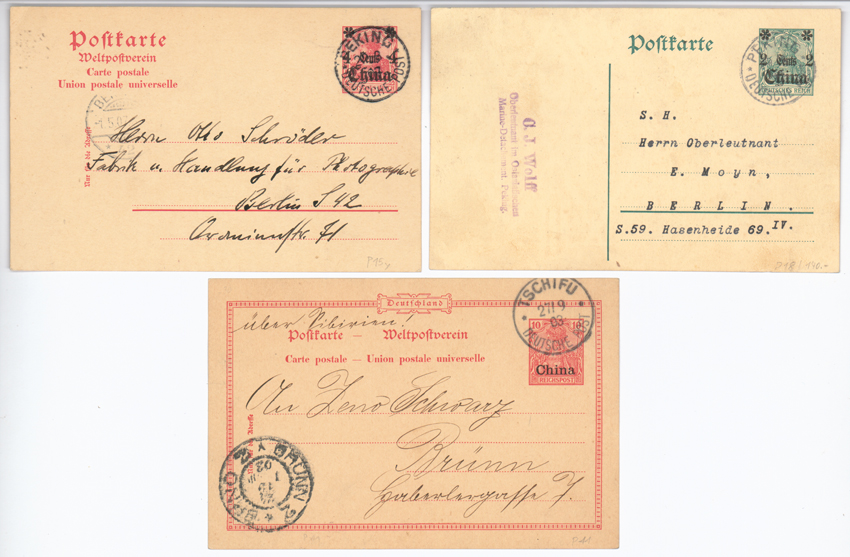 Postkarte
Weltpostverein
Carte postale
Union postale universelle
4 Cents 4
China
PEKING
DEUTSCHE POST
Nur für die Adresse
Herrn Otto Schröder
Fabrik u. Handlung für Photographie
Berlin S 42
Oranienstr. 71
P15y
Postkarte
2 Cents 2
China
DEUTSCHES REICH
PEKING
DEUTSCHE
O. J. Wolff
S. H.
Herrn Oberleutnant
E. Moyn,
BERLIN.
S.59. Hasenheide 69.IV.
Deutschland
über Sibirien!
Postkarte — Weltpostverein
Carte postale — Union postale universelle
10 10
China
REICHSPOST
TSCHIFU
27/9
03
DEUTSCHE POST
An Zeno Schwarz
Brünn
Haberlergasse 7.
BRÜNN 2
BRNO 2